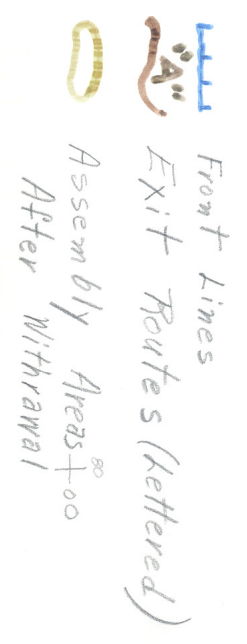 Front Lines
"A" Exit Routes (Lettered)
Assembly Areas
After Withrawal